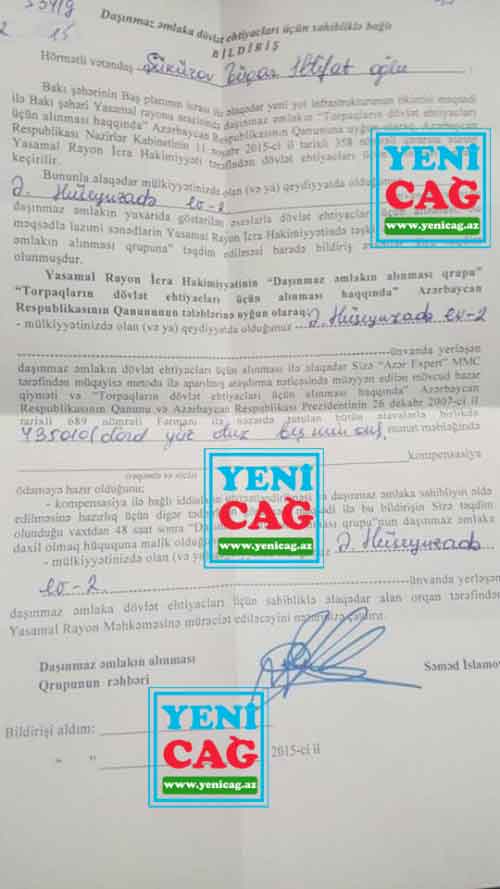 Daşınmaz əmlaka dövlət ehtiyacları üçün sahibliklə bağlı
BİLDİRİŞ
Hörmətli vətəndaş Şükürov Rüfət İltifat oğlu
Bakı şəhərinin Baş planının icrası ilə əlaqədar yeni yol infrastrukturunun tikintisi məqsədi
ilə Bakı şəhəri Yasamal rayonu ərazisində daşınmaz əmlakın "Torpaqların dövlət ehtiyacları
üçün alınması haqqında" Azərbaycan Respublikasının Qanununa uyğun olaraq, Azərbaycan
Respublikası Nazirlər Kabinetinin 11 2015-ci il tarixli 358 nömrəli
Yasamal Rayon İcra Hakimiyyəti tərəfindən dövlət ehtiyacları üçün
keçirilir.
Bununla əlaqədar mülkiyyətinizdə olan (və ya) qeydiyyatda olduğunuz
Ə. Hüseynzadə ev-2
daşınmaz əmlakın yuxarıda göstərilən əsaslarla dövlət ehtiyacları üçün alınması
məqsədlə lazımi sənədlərin Yasamal Rayon İcra Hakimiyyətində
əmlakın alınması qrupuna" təqdim edilməsi barədə bildiriş
olunmuşdur.
Yasamal Rayon İcra Hakimiyyətinin "Daşınmaz əmlakın alınması qrupu"
"Torpaqların dövlət ehtiyacları üçün alınması haqqında" Azərbaycan
Respublikasının Qanununun tələblərinə uyğun olaraq:
- mülkiyyətinizdə olan (və ya) qeydiyyatda olduğunuz Ə. Hüseynzadə ev-2
ünvanda yerləşən
daşınmaz əmlakın dövlət ehtiyacları üçün alınması ilə əlaqədar Sizə "Azər Expert" MMC
tərəfindən müqayisə metodu ilə aparılmış araşdırma nəticəsində müəyyən edilən mövcud bazar
qiyməti və "Torpaqların dövlət ehtiyacları üçün alınması haqqında" Azərbaycan
Respublikasının Qanunu və Azərbaycan Respublikası Prezidentinin 26 dekabr 2007-ci il
tarixli 689 nömrəli Fərmanı ilə nəzərdə tutulan bütün əlavələrlə birlikdə
435010 (dörd yüz otuz beş min on) manat məbləğində
kompensasiya
(rəqəmlə və sözlə)
ödəməyə hazır olduğunu;
- kompensiya ilə bağlı daşınmaz əmlaka sahibliyin əldə
edilməsinə hazırlıq üçün digər ilə bu bildirişin Sizə təqdim
olunduğu vaxtdan 48 saat sonra qrupu"nun daşınmaz əmlaka
daxil olmaq hüququna malik olduğunu
- mülkiyyətinizdə olan (və ya) Ə. Hüseynzadə
ev-2 ünvanda yerləşən
daşınmaz əmlaka dövlət ehtiyacları üçün sahibliklə əlaqədar alan orqan tərəfindən
Yasamal Rayon Məhkəməsinə müraciət ediləcəyini nəzərinizə çatdırır.
Daşınmaz əmlakın alınması
Qrupunun rəhbəri
Səməd İslamov
Bildirişi aldım:
" " 2015-ci il
YENİ
ÇAĞ
www.yenicag.az
YENİ
ÇAĞ
www.yenicag.az
YENİ
ÇAĞ
www.yenicag.az